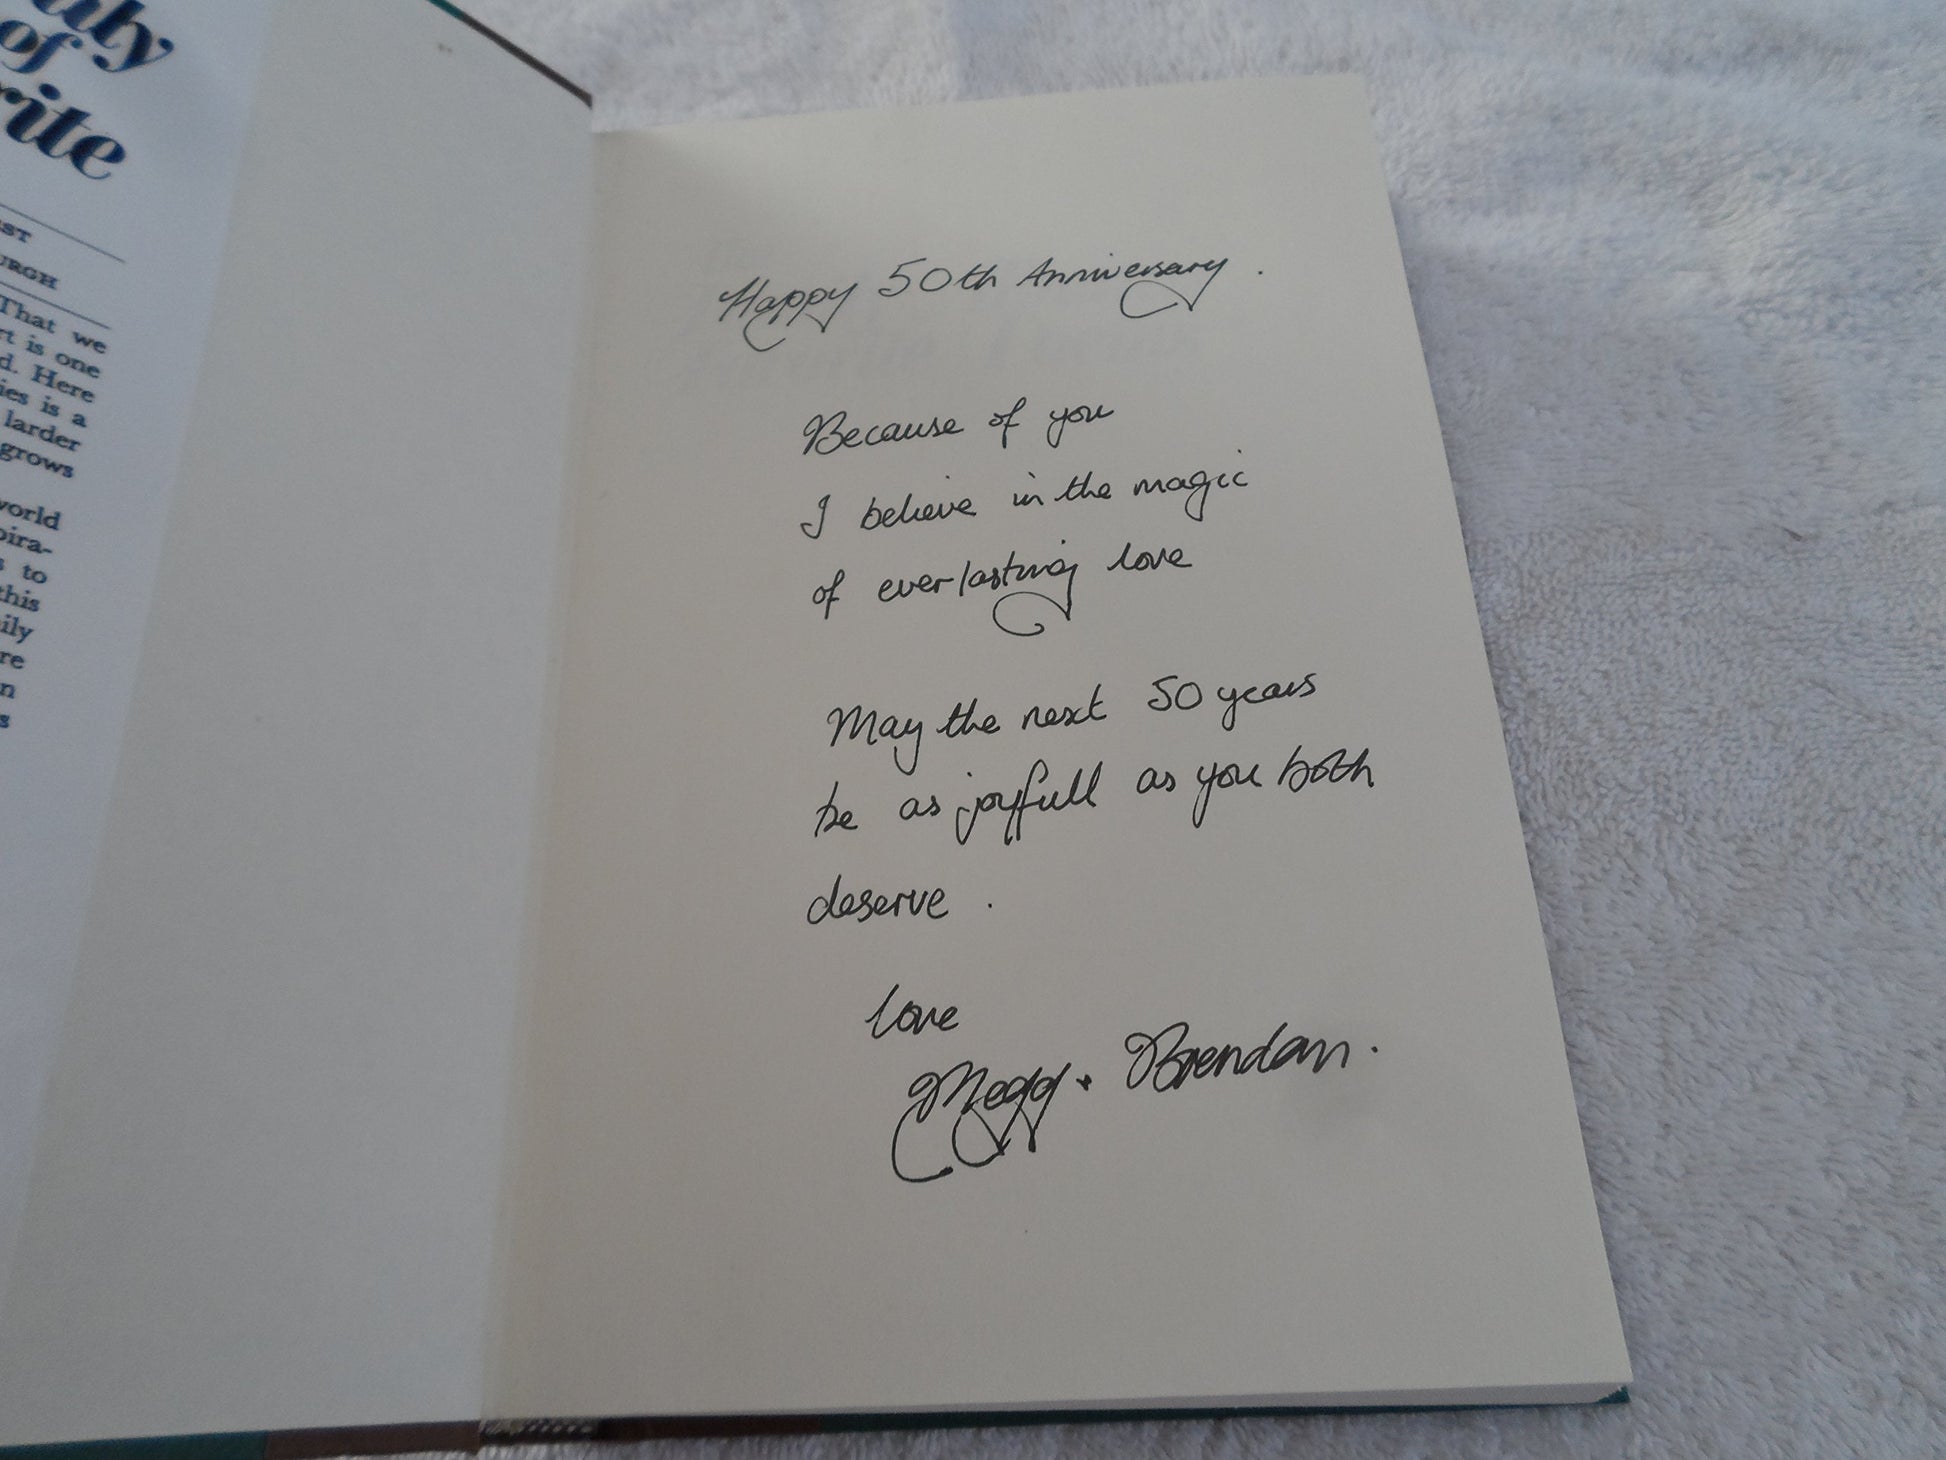 of
rite
That we
rt is one
d. Here
ies is a
larder
grows
world
pira-
s to
this
ily
re
n
s
Happy 50th Anniversary.
Because of you
I believe in the magic
of everlasting love
May the next 50 years
be as joyfull as you both
deserve.
love
Megg + Brendan.